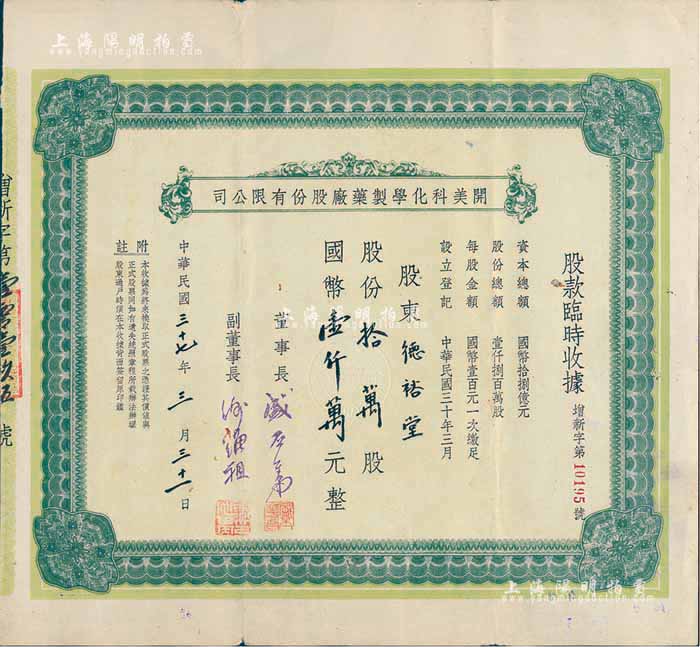 上海陽明拍賣
www.yangmingauction.com
開美科化學製藥廠股份有限公司
股款臨時收據
增新字第10195號
資本總額 國幣拾捌億元
股份總額 壹仟捌百萬股
每股金額 國幣壹百元一次繳足
設立登記 中華民國三十年三月
股東 德裕堂
股份拾萬股
國幣壹仟萬元整
董事長
副董事長
中華民國三十七年三月三十一日
附註
本收據為將來換取正式股票之憑證其價值與
正式股票同如有遺失概照章程所載辦法辦理
股東過戶時須在本收據背面簽留原印鑑
增新字第壹零壹玖五號
上海陽明拍賣
上海陽明拍賣
www.yangmingauction.com